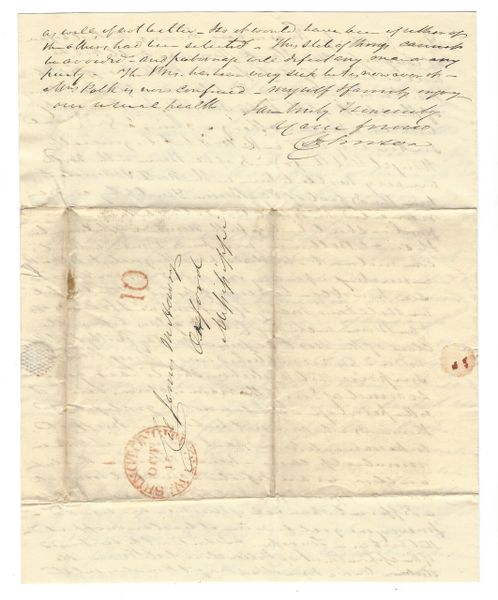 as well if not better - So it would have been if either of
the others had been selected - This state of things cannot
be avoided - and patronage will defeat any man or any
party - The Pres. has been very sick but is now over it -
Mrs Polk is now confined - myself & family enjoy
our usual health
I am truly & sincerely
Your friend
10
James M Howry
Oxford
Mississippi
OCT